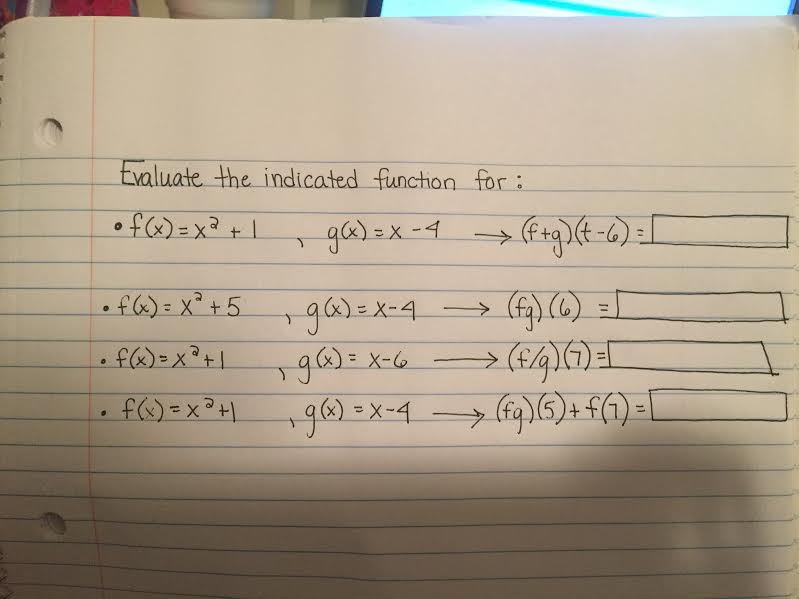 Evaluate the indicated function for :
• f(x) = x² + 1 , g(x) = x - 4 → (f+g)(t-6) =
• f(x) = x² + 5 , g(x) = x-4 → (fg)(6) =
• f(x) = x²+1 , g(x) = x-6 → (f/g)(7) =
• f(x) = x²+1 , g(x) = x-4 → (fg)(5) + f(7) =